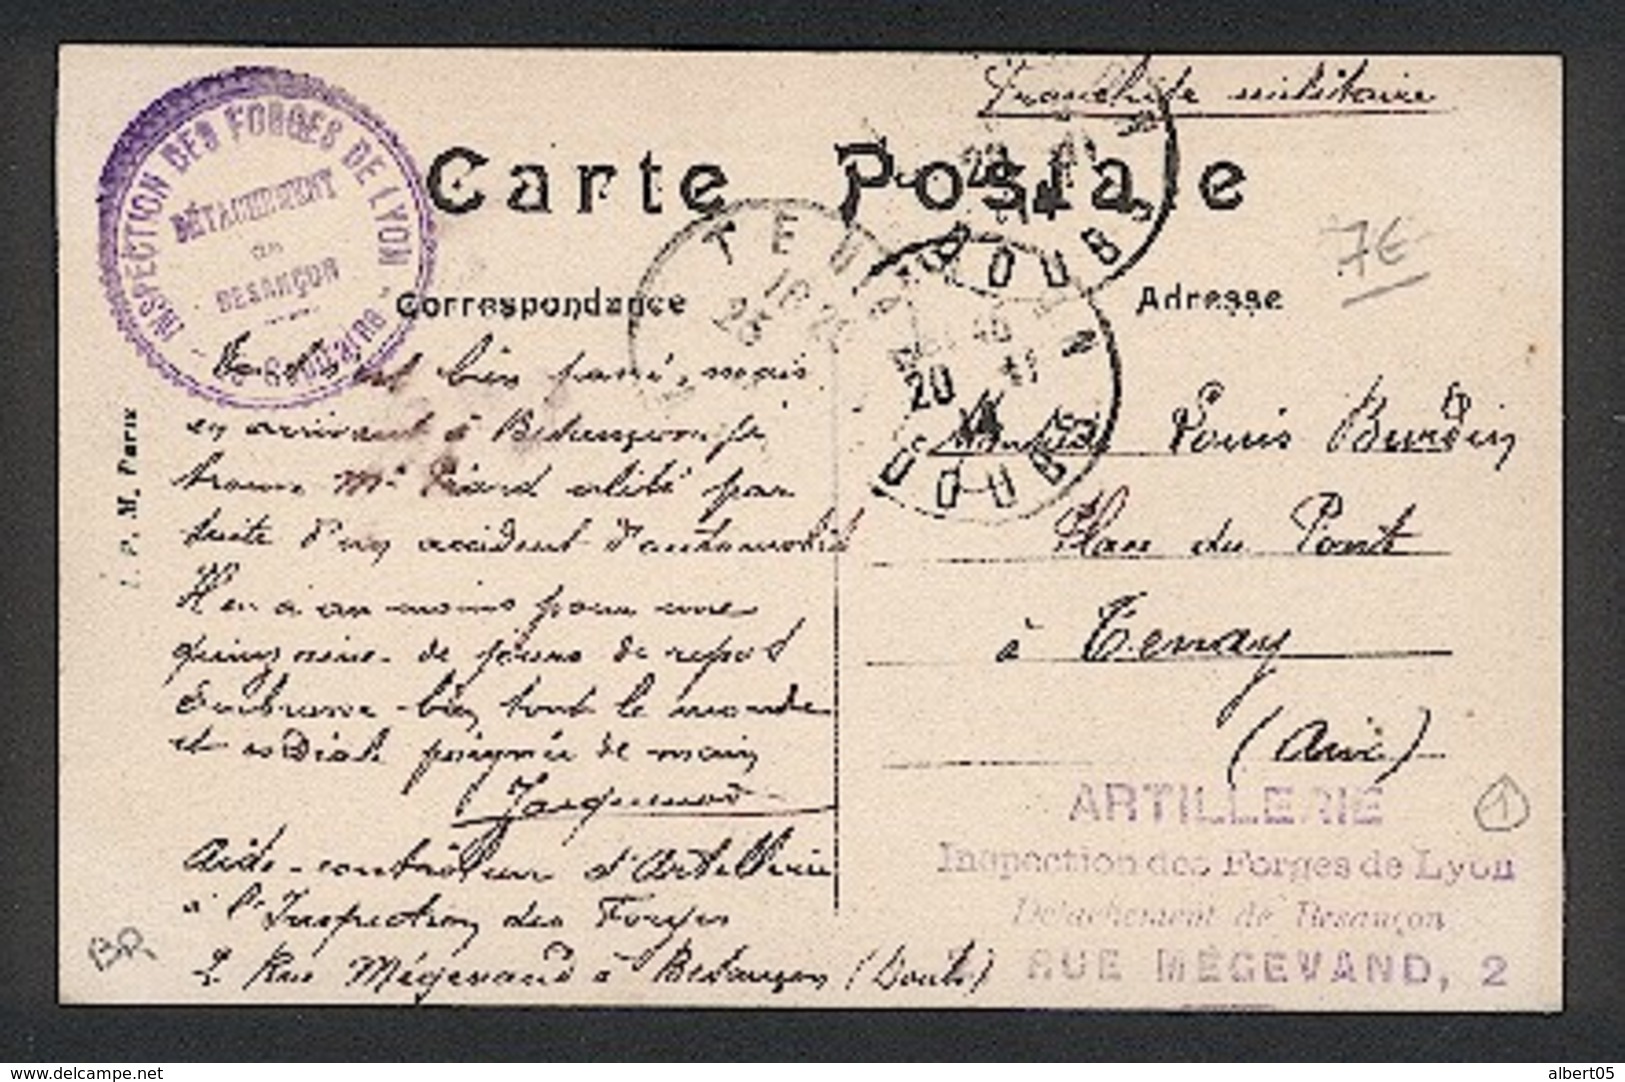 Franchise militaire
Carte Postale
INSPECTION DES FORGES DE LYON
DÉTACHEMENT
de
BESANÇON
Le Secrétaire
7€
Correspondance
Adresse
TENAY
18 25
23
BESANÇON
DOUBS
20
I. P. M. Paris
est bien passé, mais
en arrivant à Besançon je
trouve Mr Piard alité par
suite d'un accident d'automobile
Il en a au moins pour une
quinzaine de jours de repos
Embrasse bien tout le monde
et cordiale poignée de main
Jacquenod
Aide-contrôleur d'Artillerie
à l'Inspection des Forges
2 Rue Mégevand à Besançon (Doubs)
Monsieur Louis Burdin
Place du Pont
à Tenay
(Ain)
ARTILLERIE
Inspection des Forges de Lyon
Détachement de Besançon
RUE MÉGEVAND, 2
1
BR
www.delcampe.net
albert05